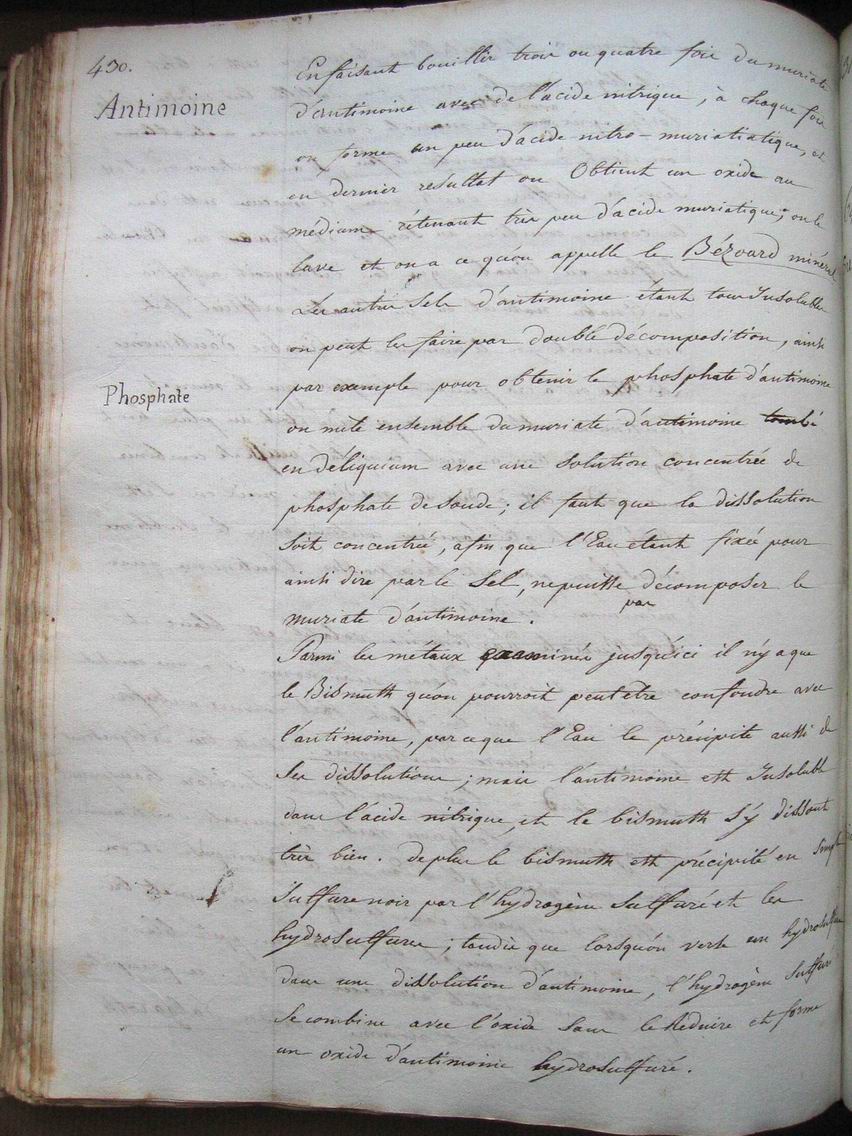 430.
Antimoine
En faisant bouillir trois ou quatre fois du muriate
d'antimoine avec de l'acide nitrique, à chaque fois
on forme un peu d'acide nitro-muriatiatique, et
en dernier resultat on Obtient un oxide au
médium rétenant très peu d'acide muriatique; on le
lave et on a ce qu'on appelle le Bézoard minéral
Les autres Sels d'antimoine étant tous Insolubles
on peut les faire par double décomposition, ainsi
Phosphate
par exemple pour obtenir le phosphate d'antimoine
on mêle ensemble du muriate d'antimoine tombé
en déliquium avec une solution concentrée de
phosphate de soude; il faut que la dissolution
soit concentrée, afin que l'Eau étant fixée pour
ainsi dire par le Sel, ne puisse décomposer le
muriate d'antimoine.
par
Parmi les métaux examinés jusqu'ici il n'y a que
le Bismuth qu'on pourroit peut être confondre avec
l'antimoine, parceque l'Eau le précipite aussi de
Ses dissolutions; mais l'antimoine est Insoluble
dans l'acide nitrique, et le bismuth s'y dissout
très bien. de plus le bismuth est précipité en simple
sulfure noir par l'hydrogène sulfuré et les
hydrosulfures; tandis que lorsqu'on verse un hydrosulfure
dans une dissolution d'antimoine, l'hydrogène sulfuré
Se combine avec l'oxide sans le Réduire et forme
un oxide d'antimoine hydrosulfuré.